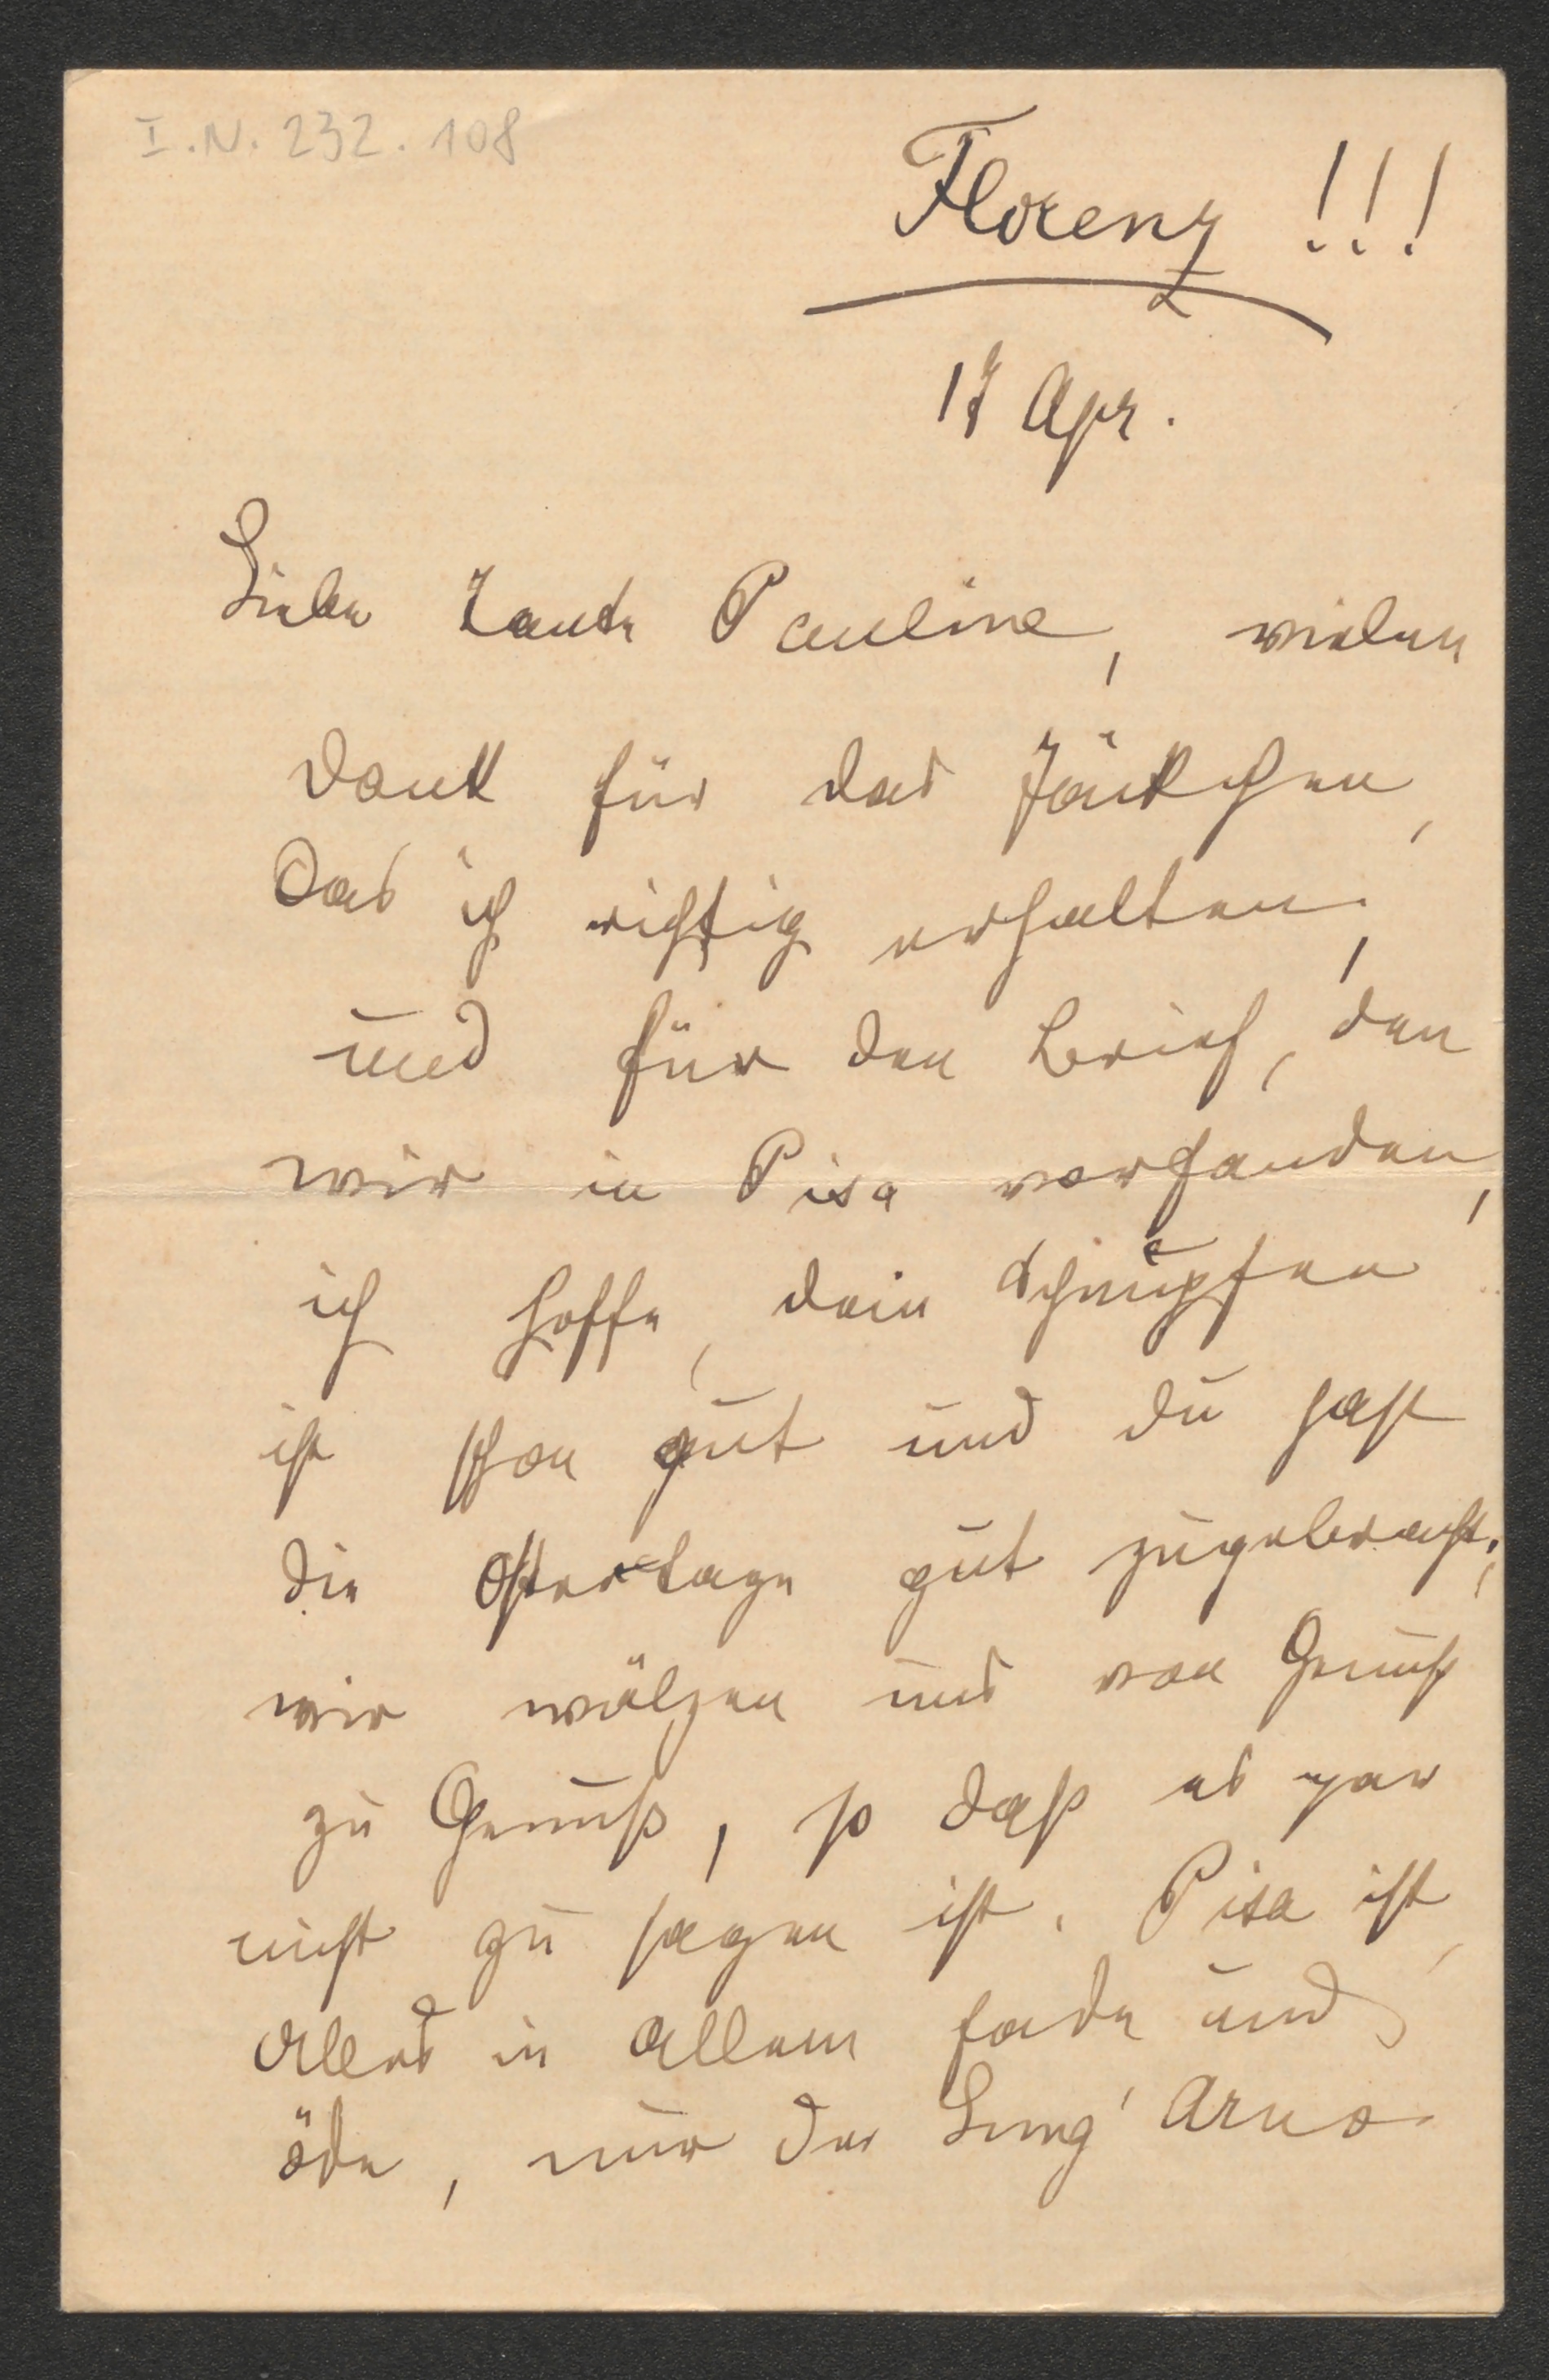 I.N. 232.108
Florenz !!!
17 Apr.
Liebe Tante Pauline, vielen
Dank für das Jäckchen,
Das ich richtig erhalten,
und für den Brief, den
wir in Pisa vorfanden,
ich hoffe, dein Schnupfen
ist schon gut und du hast
die Ostertage gut zugebracht;
wir wälzen uns von Genuß
zu Genuß, so daß es gar
nicht zu sagen ist. Pisa ist,
Alles in Allem fade und
öde, nur der Lung' Arno